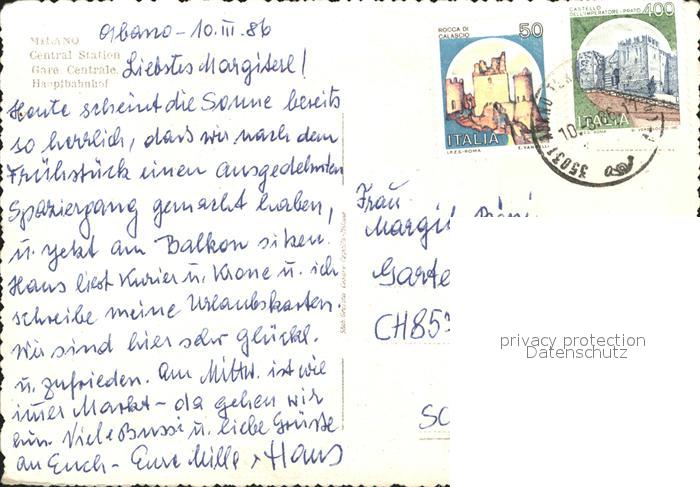 Abano - 10.III.86
MILANO
Central Station
Gare Centrale
Hauptbahnhof
Liebstes Margiterl!
Heute scheint die Sonne bereits
so herrlich, dass wir nach dem
Frühstück einen ausgedehnten
Spaziergang gemacht haben,
u. jetzt am Balkon sitzen.
Hans liest Kurier u. Krone u. ich
schreibe meine Urlaubskarten.
Wir sind hier sehr glückl.
u. zufrieden. Am Mittw. ist wie
immer Markt - da gehen wir
hin. Viele Bussi u. liebe Grüsse
an Euch - Eure Mille + Hans
ROCCA DI
CALASCIO
50
ITALIA
I.P.Z.S.-ROMA
CASTELLO
DELL'IMPERATORE-PRATO
400
ITALIA
35031
10
Frau
Margi
Garte
CH853
SC
privacy protection
Datenschutz